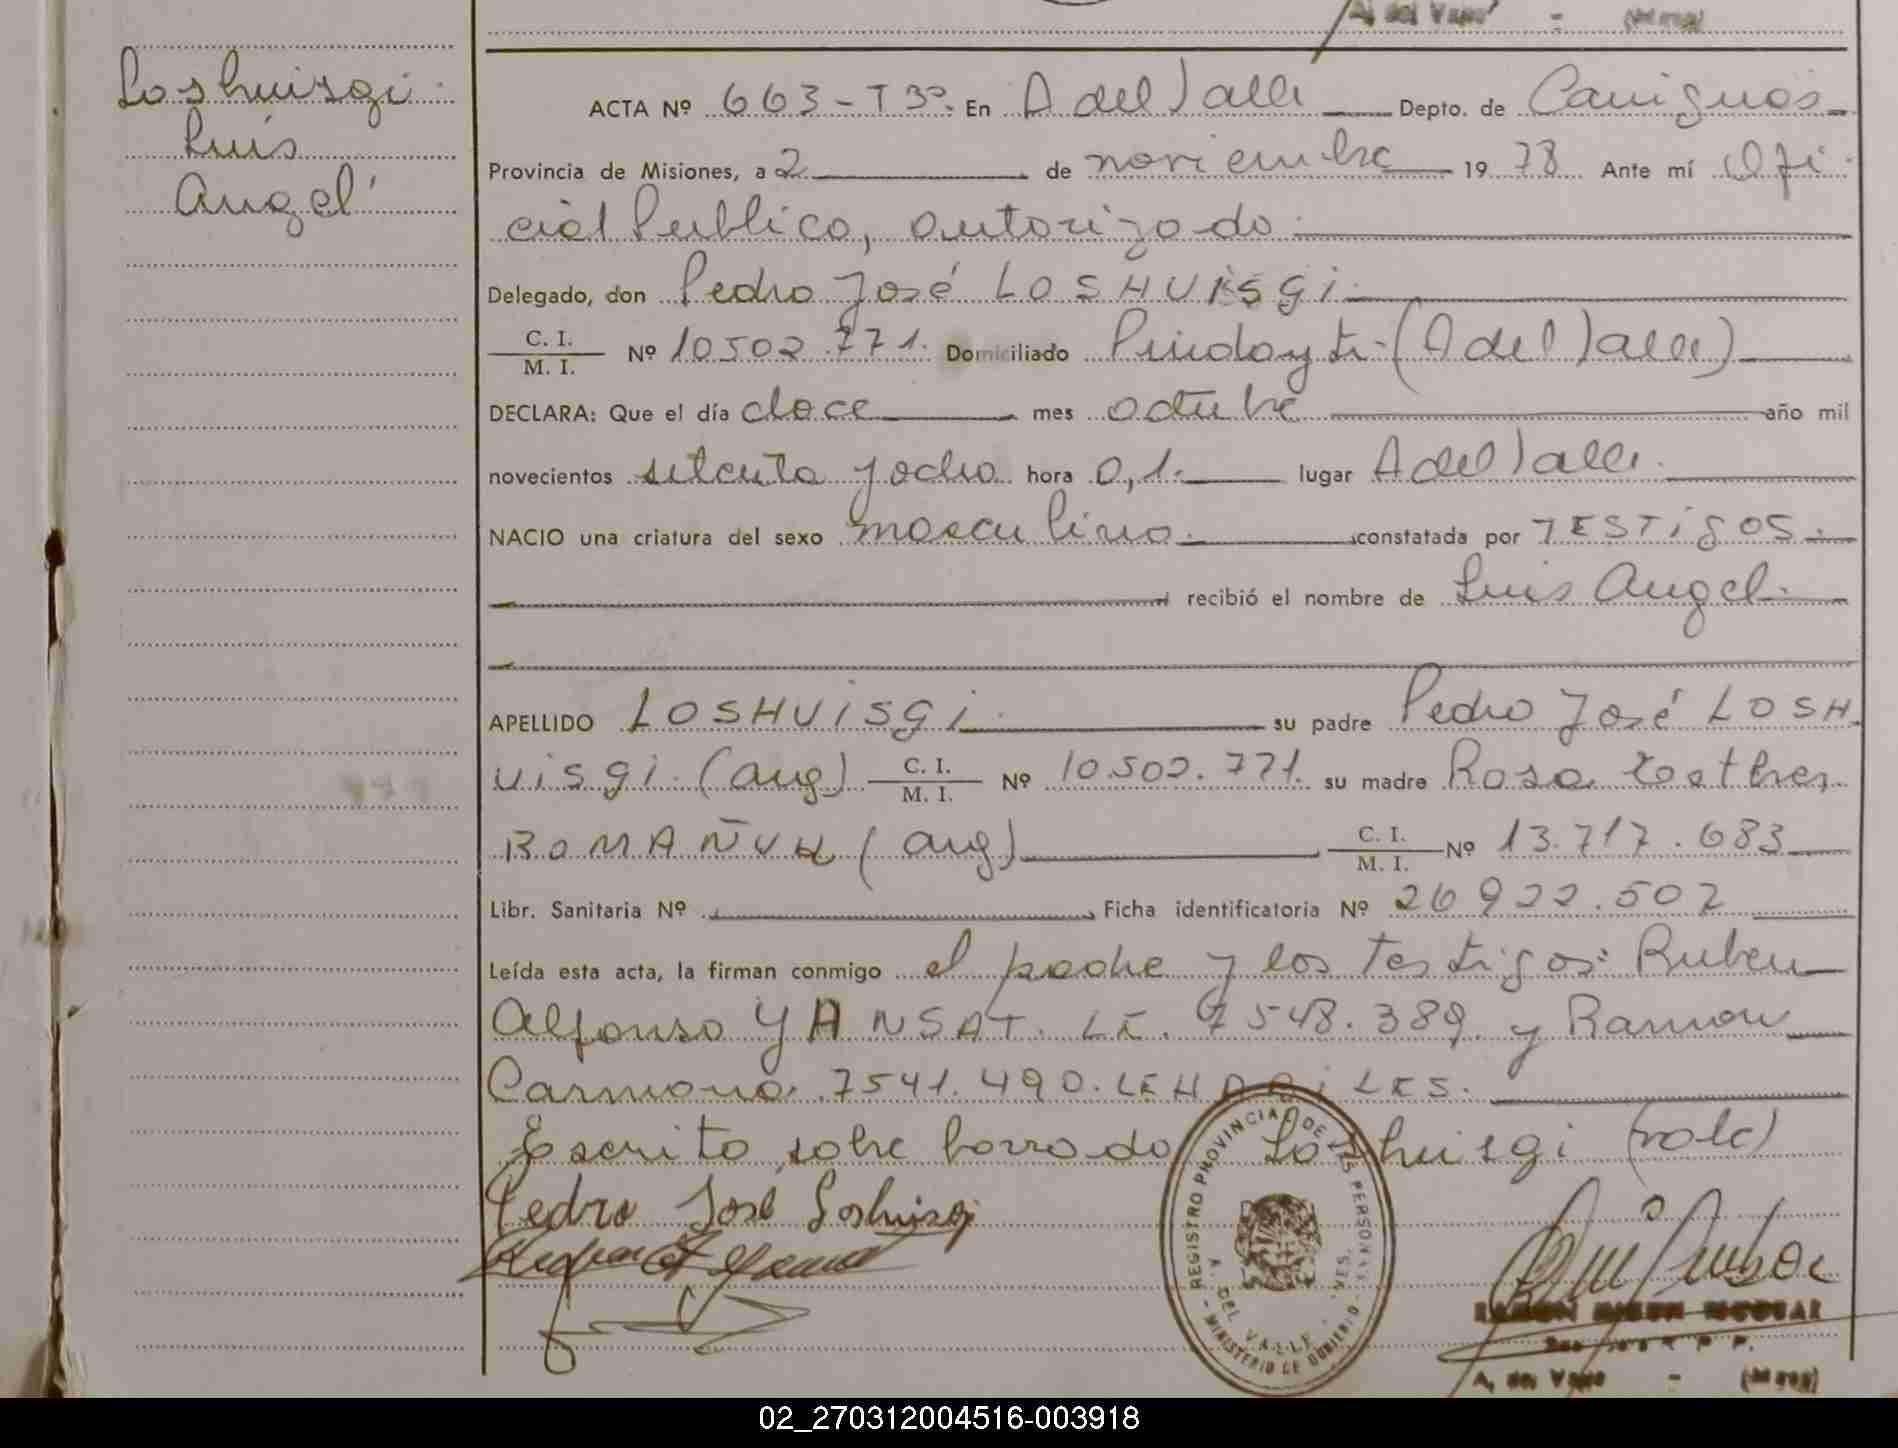 A. del Valle - (Mnes)
Loshuisgi
Luis
Angel
ACTA Nº 663-T3º. En A del Valle Depto. de Cainguás
Provincia de Misiones, a 2 de noviembre 1978 Ante mí Ofi
cial Publico, autorizado
Delegado, don Pedro José LOSHUISGI
C. I.
M. I. Nº 10502.771. Domiciliado Pindayti-(A del Valle)
DECLARA: Que el día doce mes octubre año mil
novecientos setenta y ocho hora 0,1. lugar A del Valle.
NACIO una criatura del sexo masculino. constatada por TESTIGOS.
recibió el nombre de Luis Angel.
APELLIDO LOSHUISGI. su padre Pedro José LOSH
UISGI. (arg) C. I.
M. I. Nº 10.502.771. su madre Rosa
(arg) C. I.
M. I. Nº 13.717.683
Libr. Sanitaria Nº Ficha identificatoria Nº 26922.502
Leída esta acta, la firman conmigo el padre y los testigos: Ruben
Alfonso YANSAT. LE. 7548.389. y Ramon
Carmona. 7541.490. LE HABILES.
Escrito sobre borrado Loshuisgi (vale)
Pedro José Loshuisgi
REGISTRO PROVINCIAL DE LAS PERSONAS
A. DEL VALLE - MNES.
- MINISTERIO DE GOBIERNO -
A. del Valle - (Mnes)
02_270312004516-003918